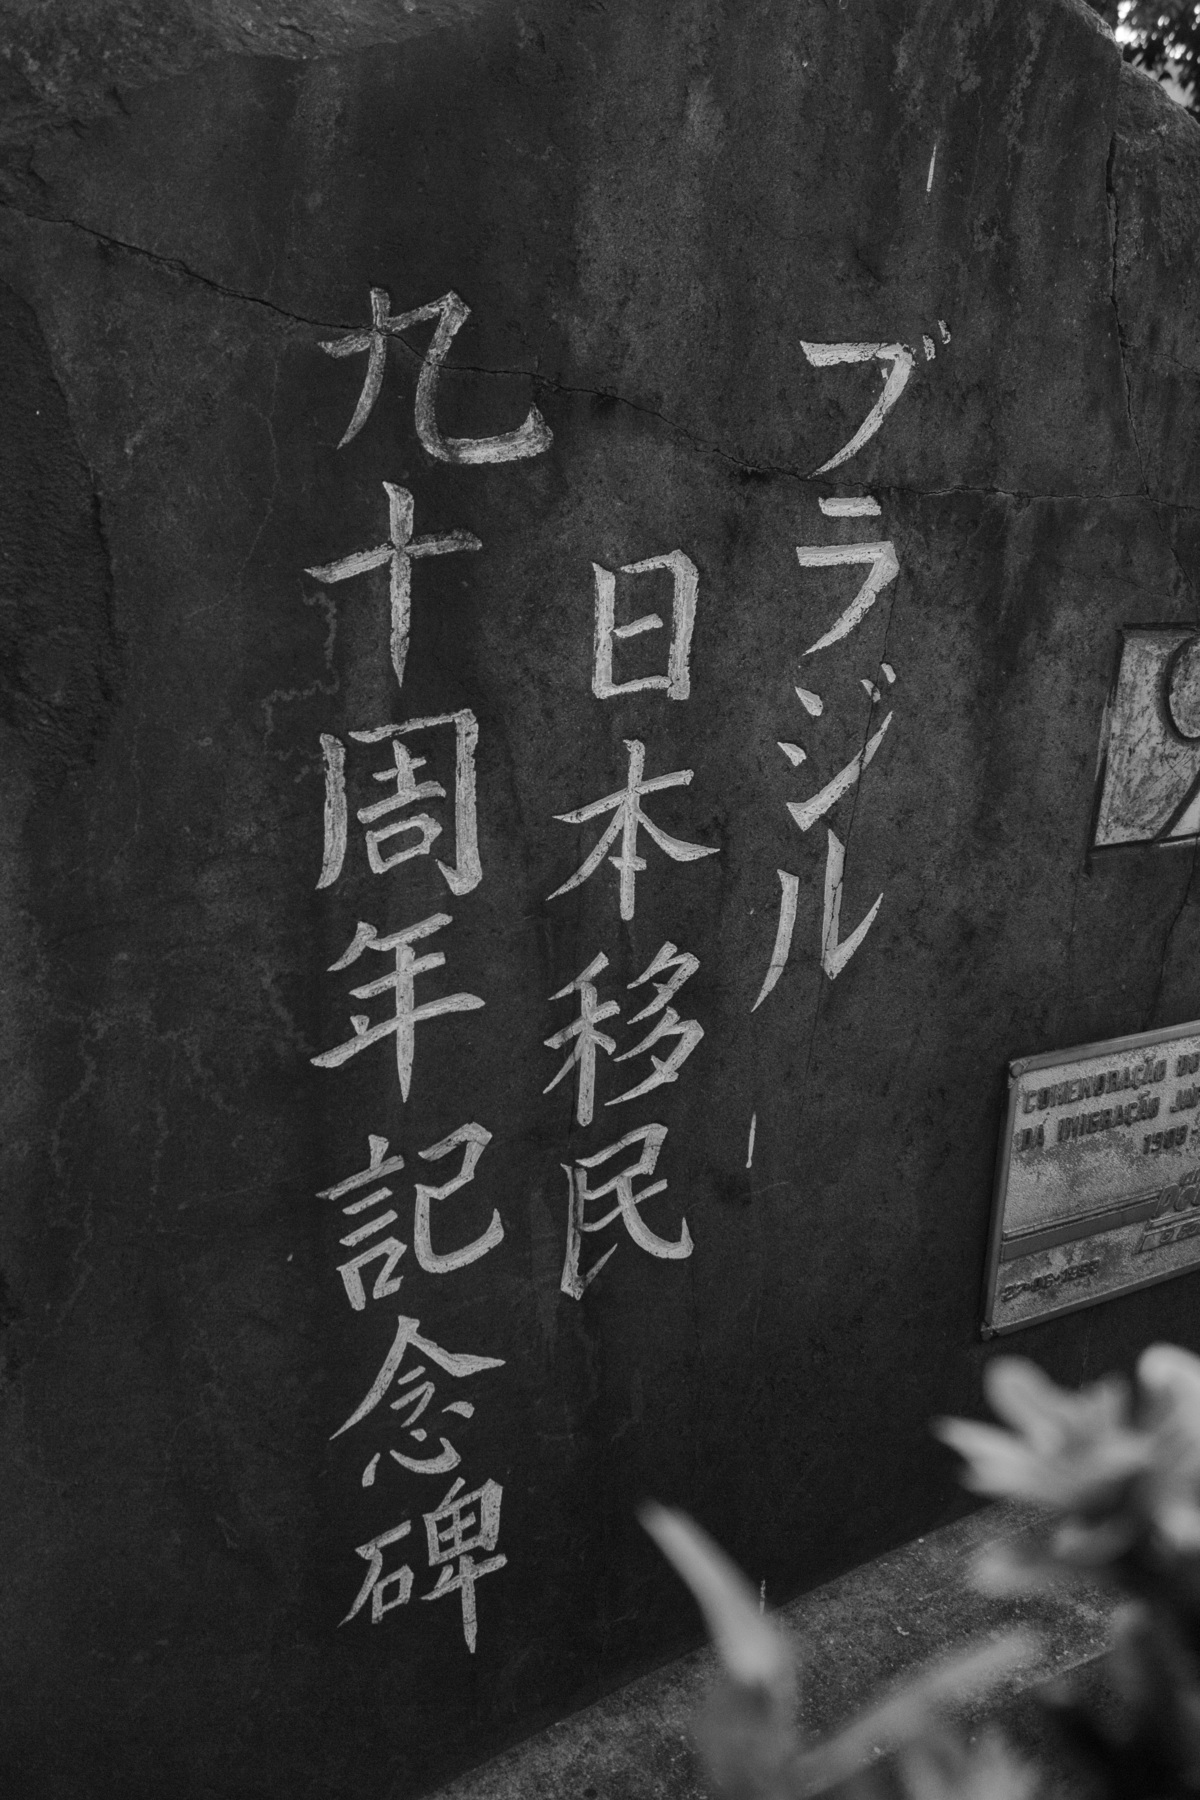 ブラジル
日本移民
九十周年記念碑
COMEMORAÇÃO DO
DA IMIGRAÇÃO